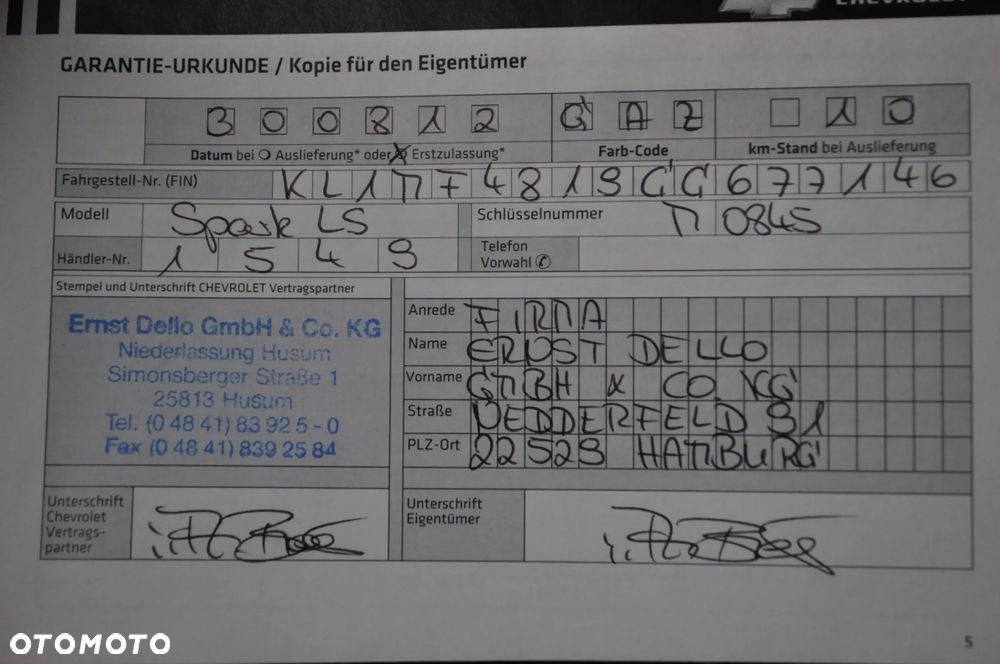 CHEVROLET
GARANTIE-URKUNDE / Kopie für den Eigentümer
300812 GAZ 10
Datum bei Auslieferung* oder Erstzulassung* Farb-Code km-Stand bei Auslieferung
Fahrgestell-Nr. (FIN) KL1MF4819CC677146
Modell Spark LS Schlüsselnummer M 0845
Händler-Nr. 1549 Telefon
Vorwahl
Stempel und Unterschrift CHEVROLET Vertragspartner
Ernst Dello GmbH & Co. KG
Niederlassung Husum
Simonsberger Straße 1
25813 Husum
Tel. (0 48 41) 83 92 5 - 0
Fax (0 48 41) 839 25 84
Anrede FIRMA
Name ERNST DELLO
Vorname GMBH & CO. KG
Straße NEDDERFELD 91
PLZ-Ort 22529 HAMBURG
Unterschrift
Chevrolet
Vertrags-
partner
Unterschrift
Eigentümer
5
OTOMOTO